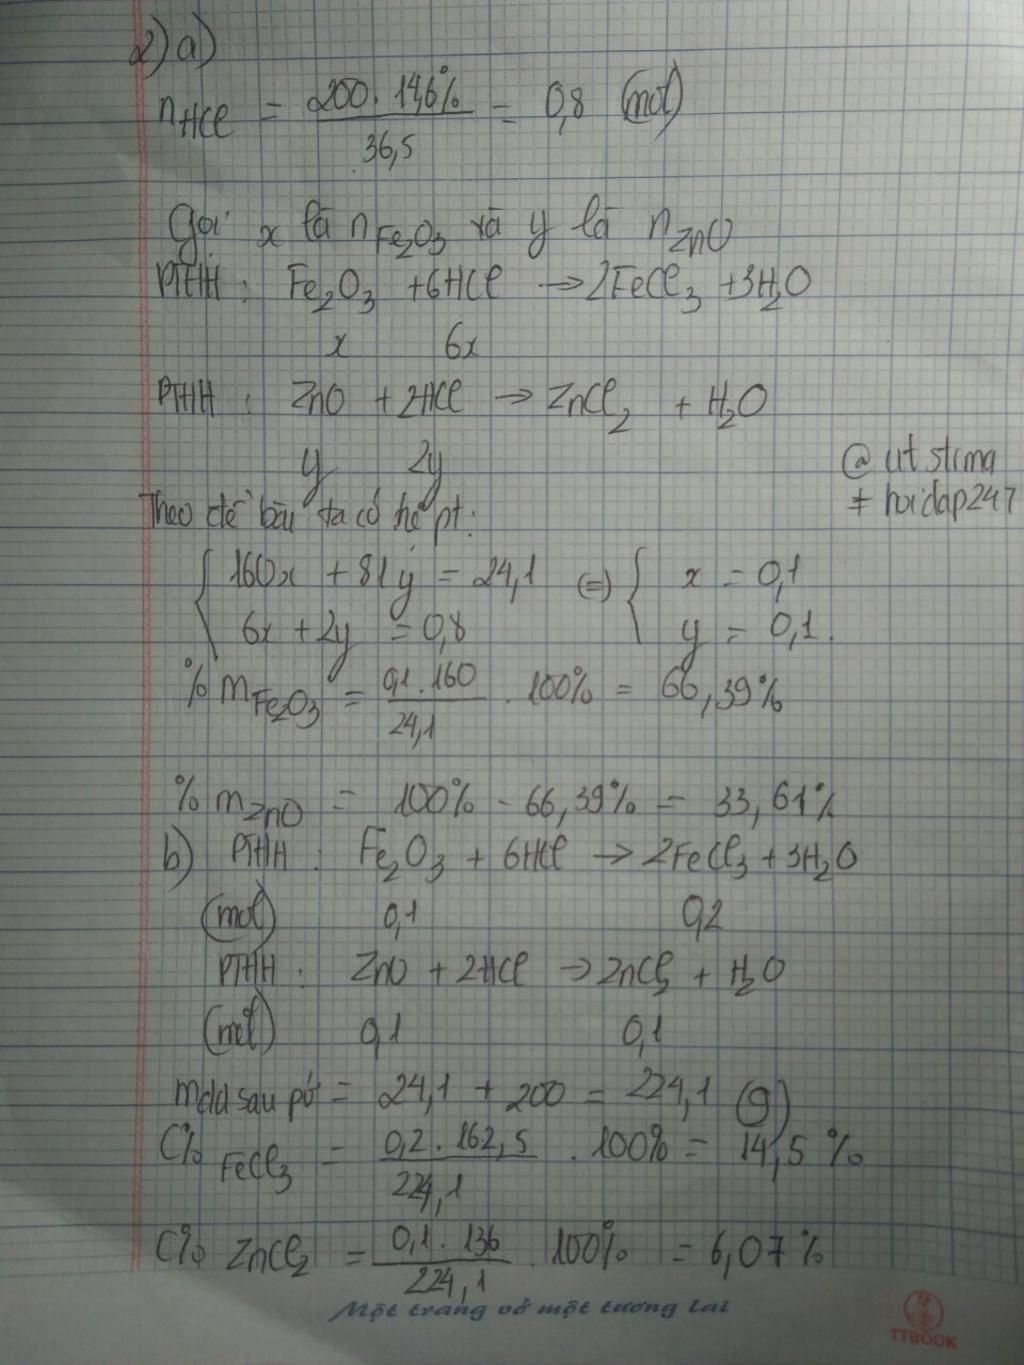 2) a)
nHCl = 200.14,6% / 36,5 = 0,8 (mol)
Gọi x là nFe2O3 và y là nZnO
PTHH: Fe2O3 + 6HCl → 2FeCl3 + 3H2O
x 6x
PTHH: ZnO + 2HCl → ZnCl2 + H2O
y 2y
@ ut stima
# hoidap247
Theo đề bài ta có hệ pt:
{ 160x + 81y = 24,1 (=) { x = 0,1
6x + 2y = 0,8 y = 0,1.
% mFe2O3 = 0,1.160 / 24,1 . 100% = 66,39%
% mZnO = 100% - 66,39% = 33,61%
b) PTHH: Fe2O3 + 6HCl → 2FeCl3 + 3H2O
(mol) 0,1 0,2
PTHH: ZnO + 2HCl → ZnCl2 + H2O
(mol) 0,1 0,1
mdd sau pứ = 24,1 + 200 = 224,1 (g)
C% FeCl3 = 0,2.162,5 / 224,1 . 100% = 14,5%
C% ZnCl2 = 0,1.136 / 224,1 . 100% = 6,07%
Một trang vở một tương lai
TTBOOK